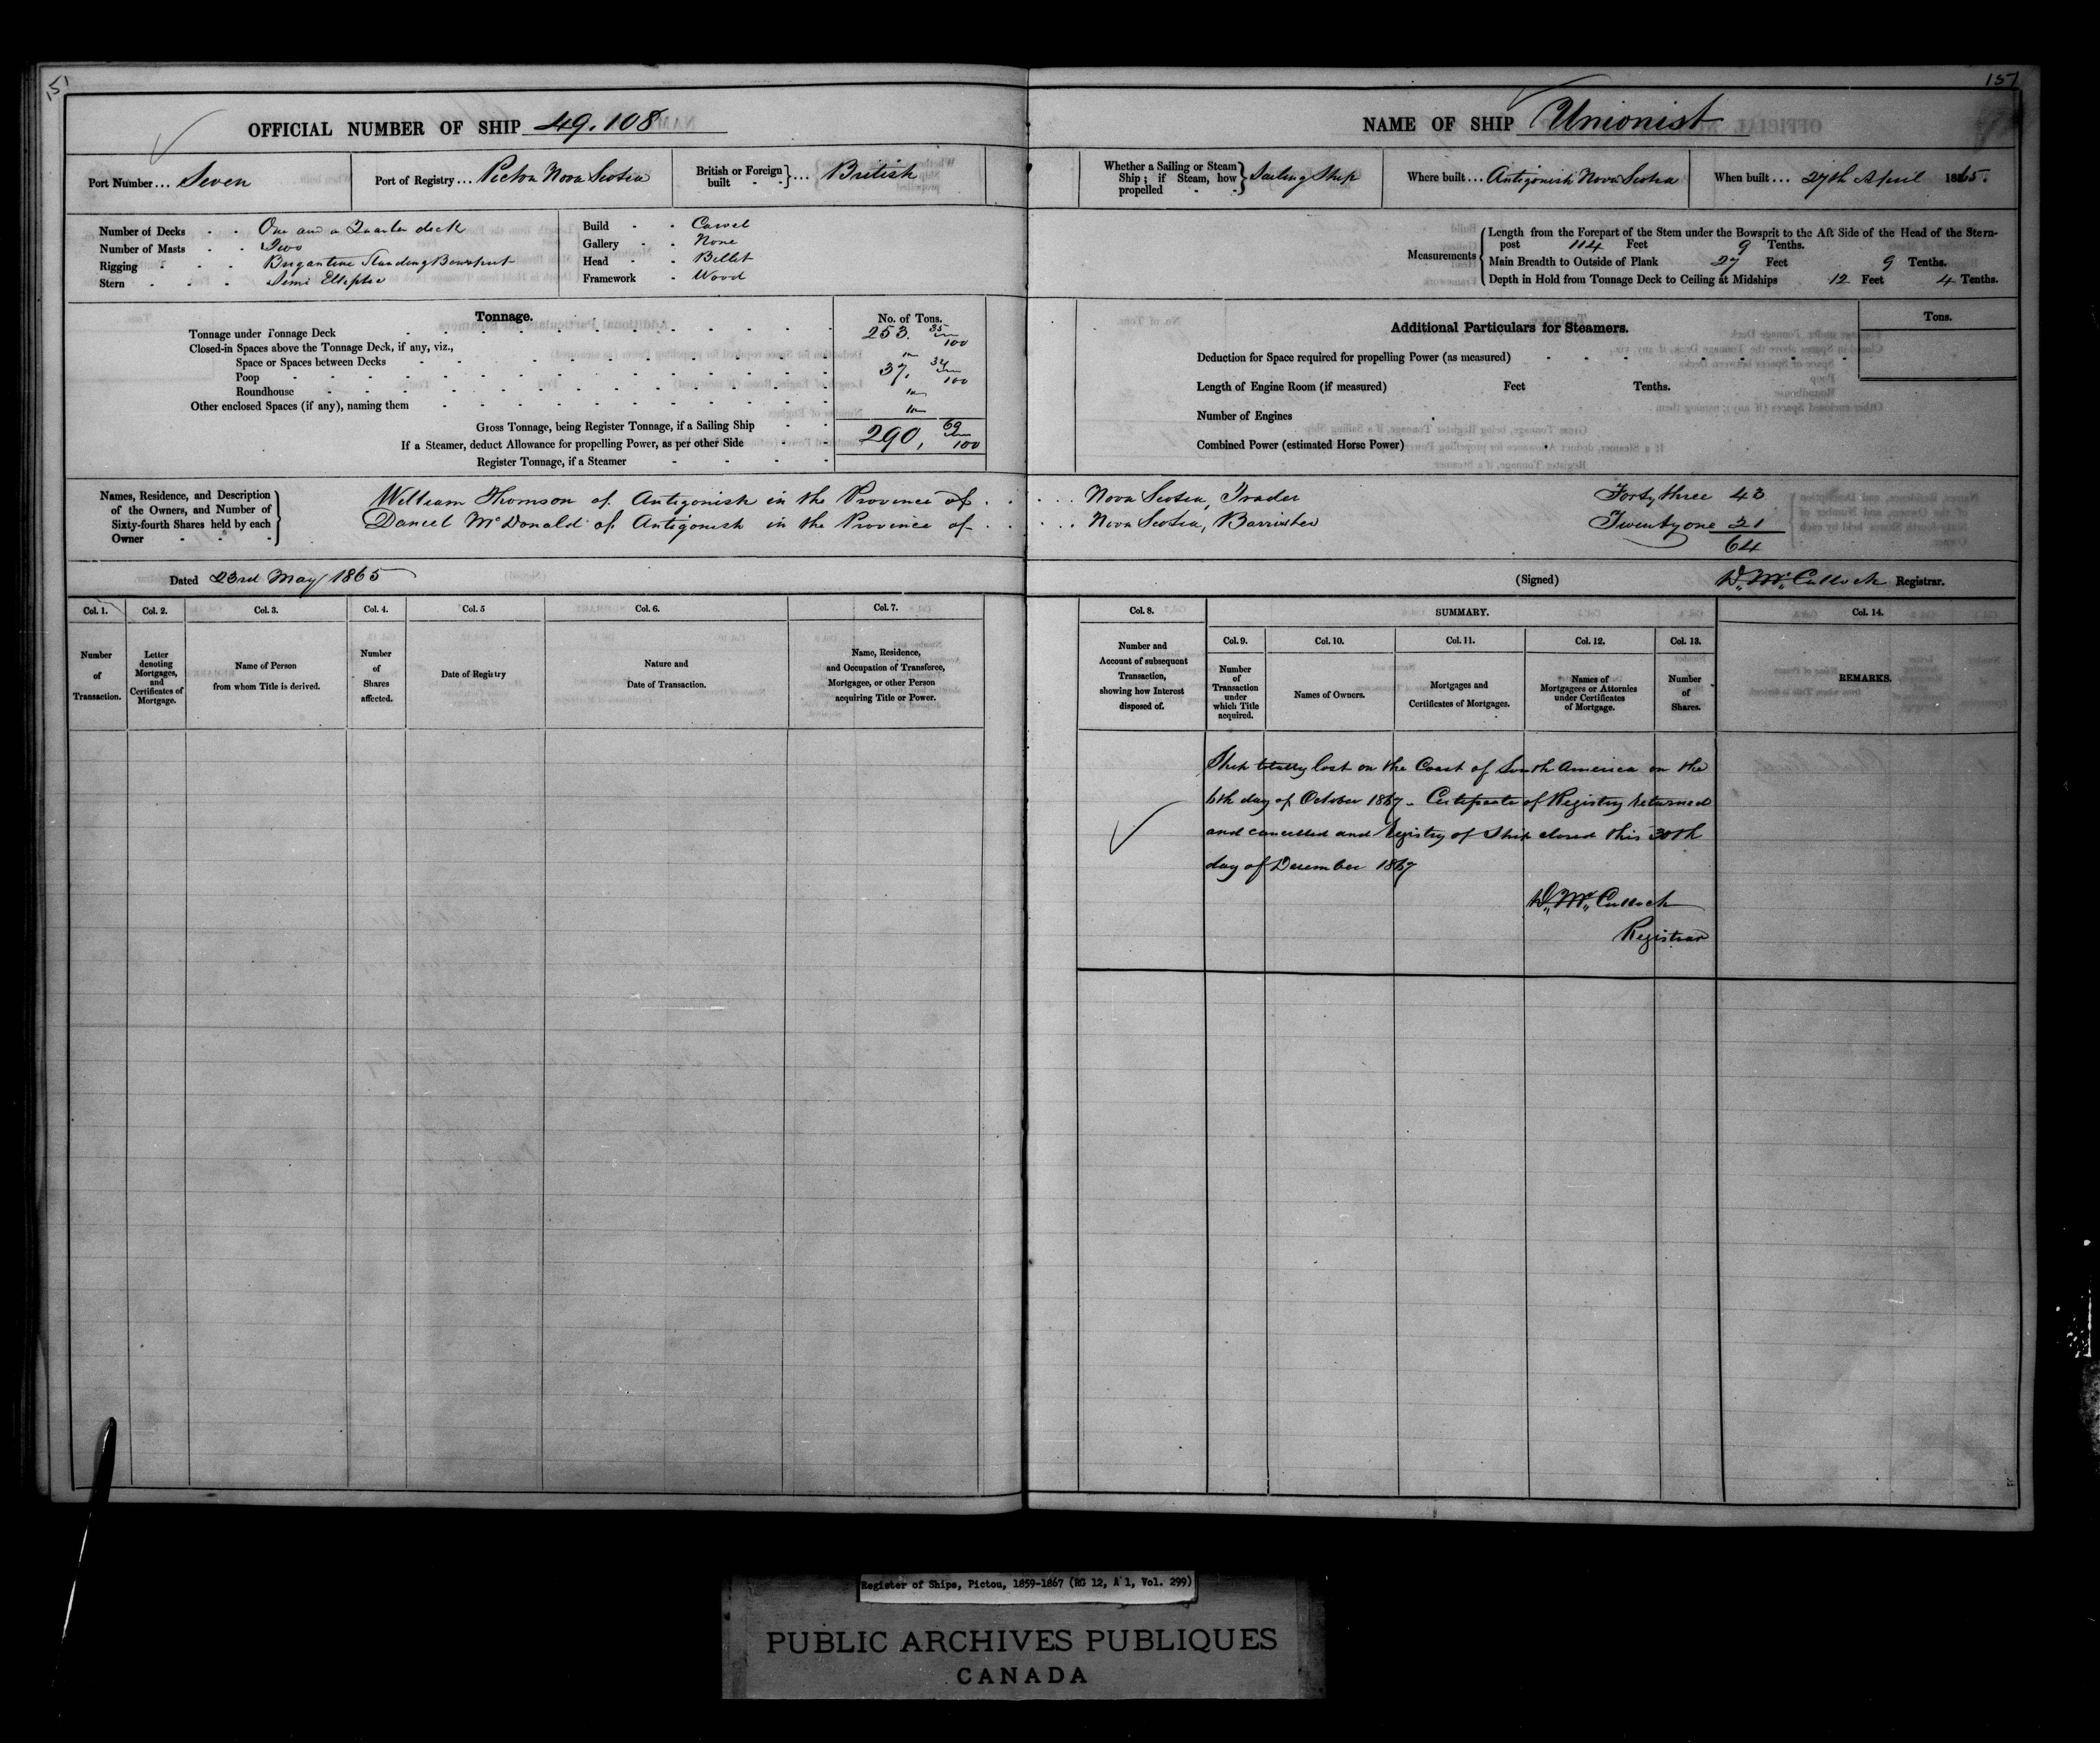 151
157
OFFICIAL NUMBER OF SHIP 49.108
NAME OF SHIP Unionist
Port Number ... Seven
Port of Registry ... Pictou Nova Scotia
British or Foreign built } ... British
Whether a Sailing or Steam Ship; if Steam, how propelled } Sailing Ship
Where built ... Antigonish Nova Scotia
When built ... 27th April 1865.
Number of Decks One and a Quarter deck
Number of Masts Two
Rigging Brigantine Standing Bowsprit
Stern Semi Elleptic
Build Carvel
Gallery None
Head Billet
Framework Wood
Measurements
Length from the Forepart of the Stem under the Bowsprit to the Aft Side of the Head of the Stern-
post 114 Feet 9 Tenths.
Main Breadth to Outside of Plank 27 Feet 9 Tenths.
Depth in Hold from Tonnage Deck to Ceiling at Midships 12 Feet 4 Tenths.
Tonnage.
No. of Tons.
Tonnage under Tonnage Deck 253. 35/100
Closed-in Spaces above the Tonnage Deck, if any, viz.,
Space or Spaces between Decks
Poop 37. 34/100
Roundhouse
Other enclosed Spaces (if any), naming them
Gross Tonnage, being Register Tonnage, if a Sailing Ship 290, 69/100
If a Steamer, deduct Allowance for propelling Power, as per other Side
Register Tonnage, if a Steamer
Additional Particulars for Steamers.
Tons.
Deduction for Space required for propelling Power (as measured)
Length of Engine Room (if measured) Feet Tenths.
Number of Engines
Combined Power (estimated Horse Power)
Names, Residence, and Description
of the Owners, and Number of
Sixty-fourth Shares held by each
Owner
William Thomson of Antigonish in the Province of . . . . . Nova Scotia, Trader Forty three 43
Daniel McDonald of Antigonish in the Province of . . . . . Nova Scotia, Barrister Twenty one 21
64
Dated 23rd May 1865
(Signed) D. McCulloch Registrar.
Col. 1.
Number
of
Transaction.
Col. 2.
Letter
denoting
Mortgages,
and
Certificates of
Mortgage.
Col. 3.
Name of Person
from whom Title is derived.
Col. 4.
Number
of
Shares
affected.
Col. 5
Date of Registry
Col. 6.
Nature and
Date of Transaction.
Col. 7.
Name, Residence,
and Occupation of Transferee,
Mortgagee, or other Person
acquiring Title or Power.
Col. 8.
Number and
Account of subsequent
Transaction,
showing how Interest
disposed of.
SUMMARY.
Col. 9.
Number
of
Transaction
under
which Title
acquired.
Col. 10.
Names of Owners.
Col. 11.
Mortgages and
Certificates of Mortgages.
Col. 12.
Names of
Mortgagees or Attornies
under Certificates
of Mortgage.
Col. 13.
Number
of
Shares.
Col. 14.
REMARKS.
Ship totally lost on the Coast of South America on the
6th day of October 1867 - Certificate of Registry returned
and cancelled and Registry of Ship closed this 30th
day of December 1867
D. McCulloch
Registrar
Register of Ships, Pictou, 1859-1867 (RG 12, A 1, Vol. 299)
PUBLIC ARCHIVES PUBLIQUES
CANADA